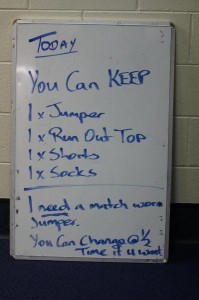 TODAY
You Can KEEP
1 x Jumper
1 x Run Out Top
1 x Shorts
1 x Socks
I need a match worn
Jumper.
You Can Change @ 1/2
Time if u want